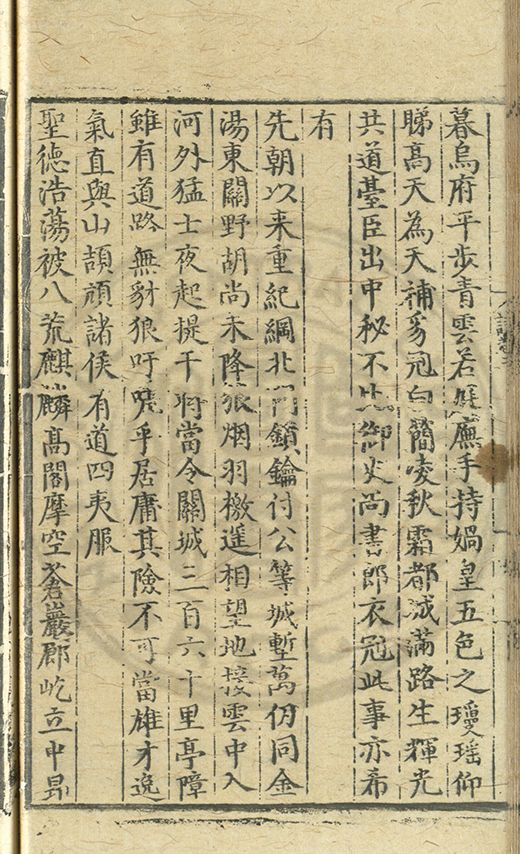 暮烏府平步青雲若庭廡手持媧皇五色之瓊瑶仰
睇髙天為天補豸冠白簡凌秋霜都城滿路生輝光
共道臺臣出中秘不比御史尚書郎衣冠此事亦希
有
先朝以来重紀綱北門鎖鑰付公等城塹萬仞同金
湯東關野胡尚未降狼烟羽檄遥相望地接雲中入
河外猛士夜起提干將當令關城三百六十里亭障
雖有道路無豺狼吁嗟乎居庸其險不可當雄才逸
氣直與山頡頏諸侯有道四夷服
聖德浩蕩被八荒麒麟髙閣摩空蒼巖郡屹立中昴